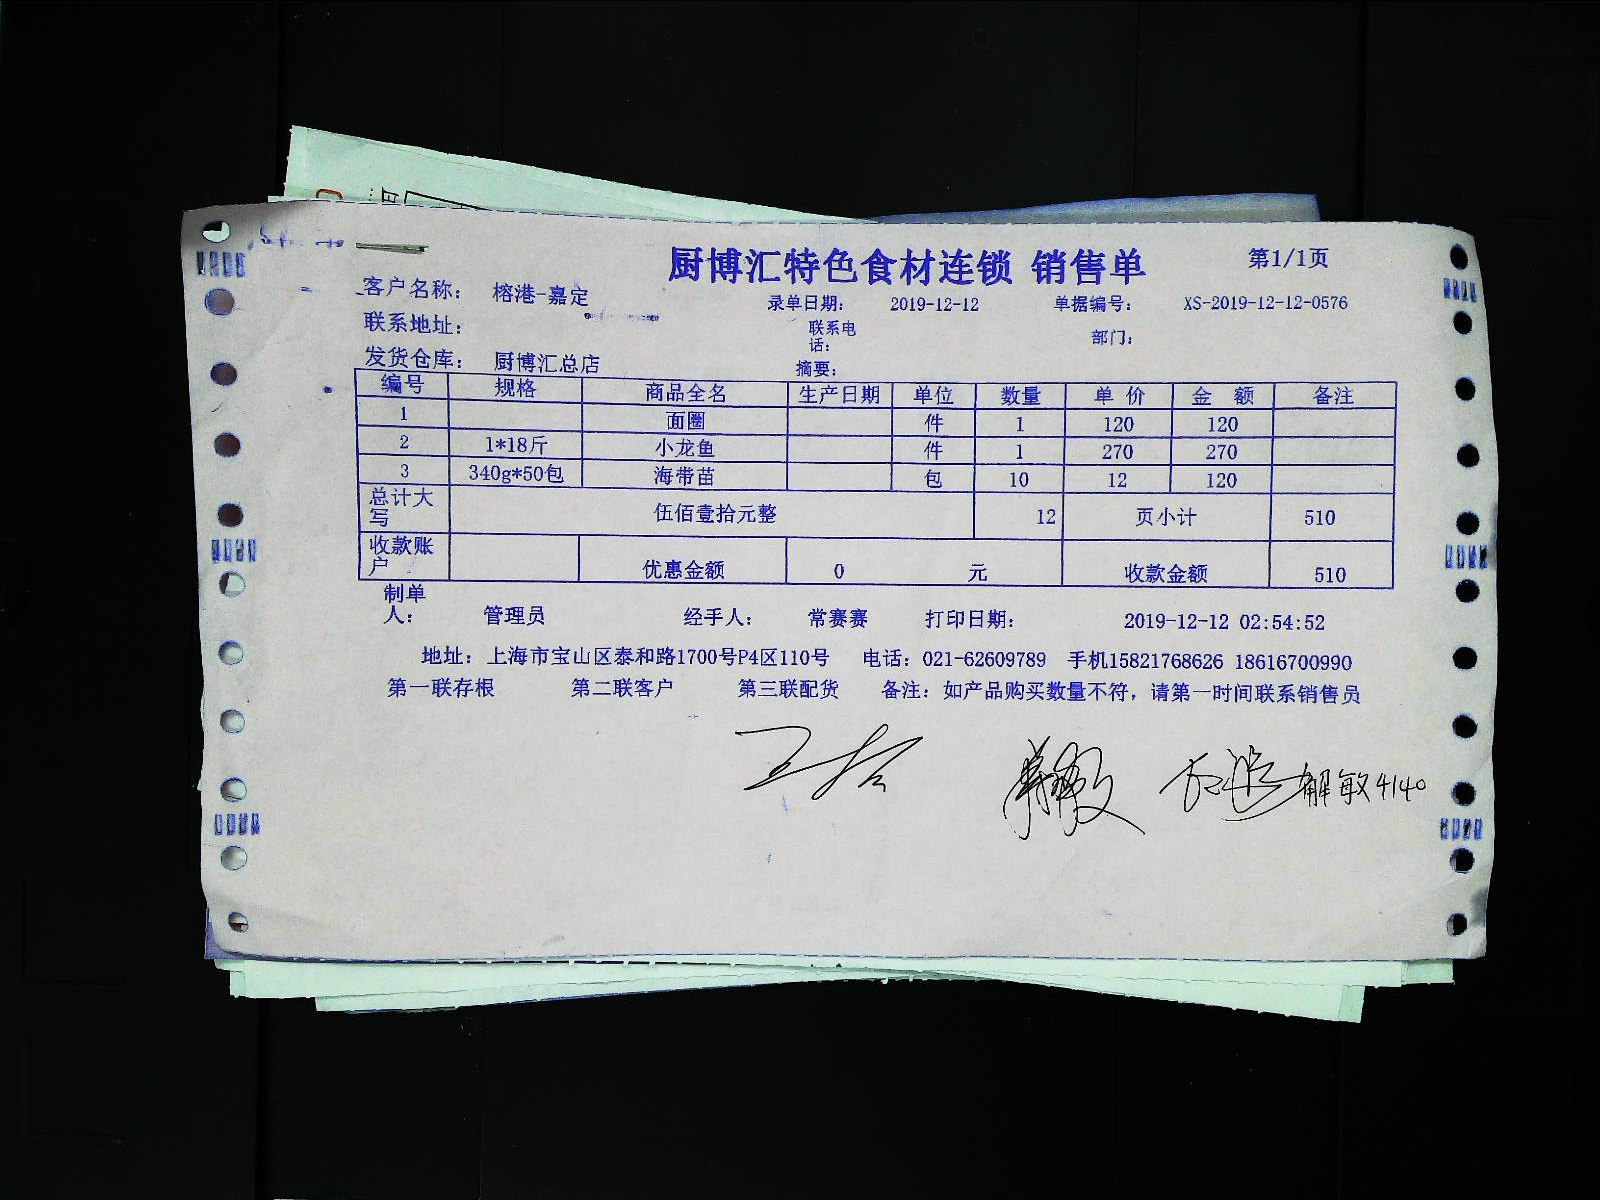 厨博汇特色食材连锁 销售单 第1/1页
客户名称： 榕港-嘉定 录单日期： 2019-12-12 单据编号： XS-2019-12-12-0576
联系地址： 联系电话： 部门：
发货仓库： 厨博汇总店 摘要：
编号 规格 商品全名 生产日期 单位 数量 单 价 金 额 备注
1 面圈 件 1 120 120
2 1*18斤 小龙鱼 件 1 270 270
3 340g*50包 海带苗 包 10 12 120
总计大写 伍佰壹拾元整 12 页小计 510
收款账户 优惠金额 0 元 收款金额 510
制单人： 管理员 经手人： 常赛赛 打印日期： 2019-12-12 02:54:52
地址：上海市宝山区泰和路1700号P4区110号 电话：021-62609789 手机15821768626 18616700990
第一联存根 第二联客户 第三联配货 备注：如产品购买数量不符，请第一时间联系销售员
解敏4140